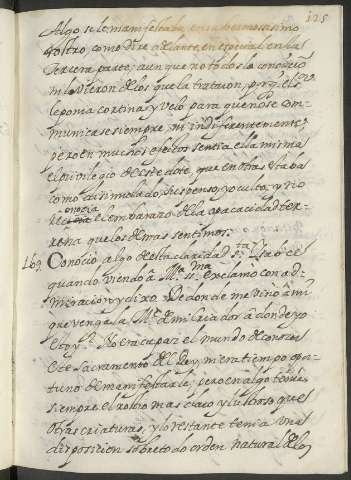 125
Algo se le manifestaba, en su hermosissimo
Rostro, como dire adelante, en especial en la
tercera parte; aunque no todos la conocieron
ni la vieron de los que la trataron, porq. el
le ponia cortina, y velo, para que no se com-
municase siempre, ni indiferentemente,
pero en muchos efectos sentia ella misma
el privilegio de este dote, que en otros estaba
como disimulado, suspenso, y oculto, y no
reconocia el embarazo de la opacacidad ter-
rena que los demas sentimos.
169 Conocio algo de esta claridad s.ta Isabel
quando viendo â M.a SS.ma exclamo con ad-
miracion, y dixo: De donde me vino â mi
que venga la M.e de mi Criador â donde yo
estoy? No era capaz el mundo de conocer
este Sacramento del Rey, ni era tiempo opor-
tuno de manifestarle; pero en algo tenia
siempre el rostro mas claro, y lustroso que
otras criaturas, y lo restante tenia una
disposicion sobre todo orden natural de los